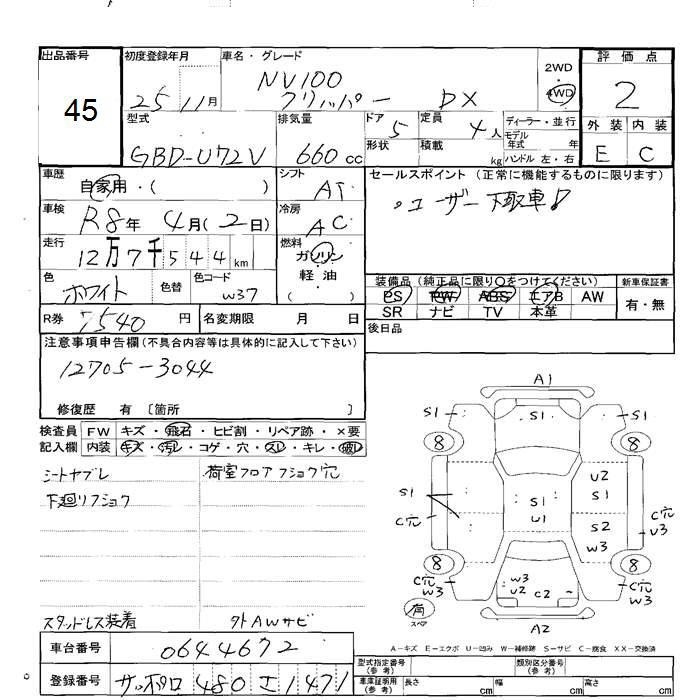 出品番号 初度登録年月 車名・グレード 2WD 評価点
45 25 11月 NV100 クリッパー DX 4WD 2
型式 排気量 ドア 定員 ディーラー・並行 外装 内装
GBD-U72V 660cc 5 4人 モデル年式 年 E C
形状 積載 kg ハンドル 左・右
車歴 自家用・( ) シフト AT セールスポイント (正常に機能するものに限ります)
車検 R8年 4月(2日) 冷房 AC ユーザー下取車!
走行 12万7千544km 燃料 ガソリン
軽油
( )
色 ホワイト 色替 色コード W37
装備品 (純正品に限り○をつけてください) 新車保証書
PS PW ABS エアB AW 有・無
SR ナビ TV 本革
R券 7540円 名変期限 月 日 後日品
注意事項申告欄(不具合内容等は具体的に記入して下さい)
12705-3044
修復歴 有 〔箇所 〕
検査員 FW キズ・飛石・ヒビ割・リペア跡・×要
記入欄 内装 キズ・汚レ・コゲ・穴・スレ・キレ・破レ
シートヤブレ 荷室フロアフショク穴
下廻リフショク
スタッドレス装着 外AWサビ
A1
S1 S1 S1
8 8
U2
S1 S1 S1
U1
C穴 S2 C穴
W3 U3
8 8
C穴 W3 C穴
W3 U2 C2 W3
有
スペア A2
A-キズ E-エクボ U-凹み W-補修跡 S-サビ C-腐食 XX-交換済
車台番号 0644672
登録番号 サッポロ 480 エ 1471
型式指定番号(参考) 類別区分番号(参考)
車庫証明用(参考) 長さ cm 幅 cm 高さ cm